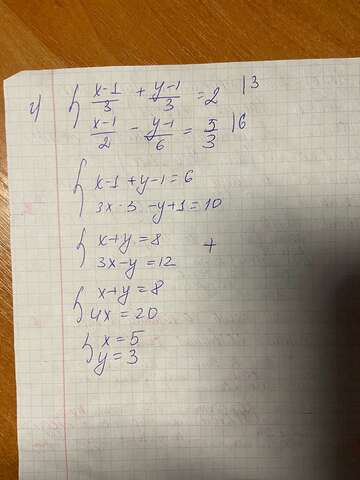 г) { (x-1)/3 + (y-1)/3 = 2 |3
(x-1)/2 - (y-1)/6 = 5/3 |6
{ x-1+y-1=6
3x-3-y+1=10
{ x+y=8 +
3x-y=12
{ x+y=8
4x=20
{ x=5
y=3